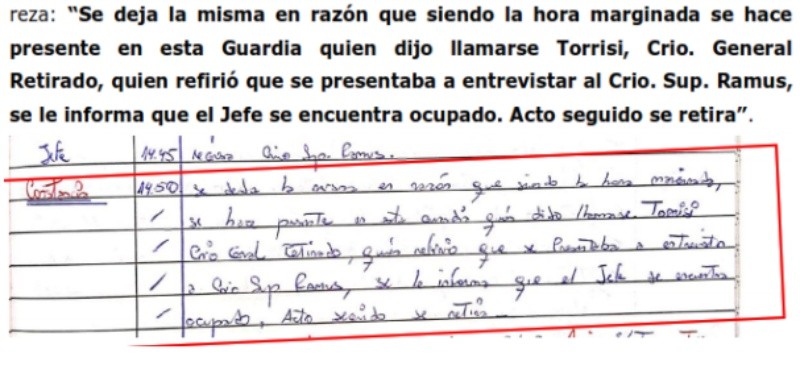 reza: “Se deja la misma en razón que siendo la hora marginada se hace
presente en esta Guardia quien dijo llamarse Torrisi, Crio. General
Retirado, quien refirió que se presentaba a entrevistar al Crio. Sup. Ramus,
se le informa que el Jefe se encuentra ocupado. Acto seguido se retira”.
Jefe 14.45 Crio Sup. Ramus.
Constancia 1450 se deda la misma en razón que siendo la hora marginada,
se hace presente en esta guardia quien dijo llamarse Torrisi
Crio Gral Retirado, quien refirio que se presentaba a entrevistar
a Crio Sup Ramus, se le informa que el Jefe se encuentra
ocupado, Acto seguido se retira